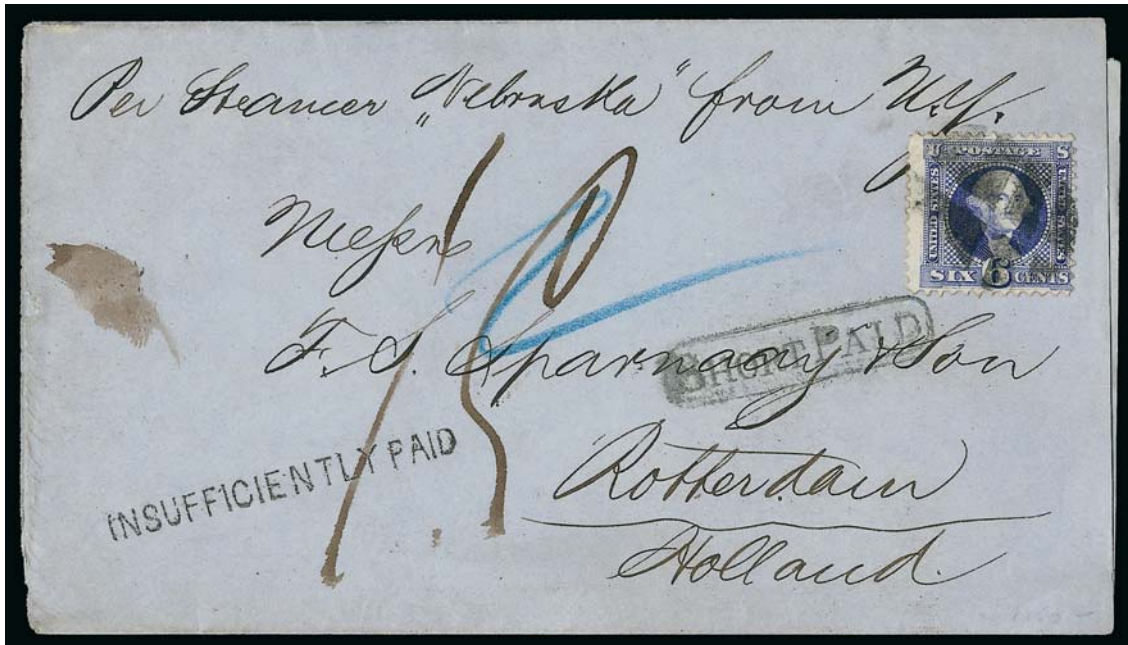 Per Steamer „Nebraska" from N.Y.
U POSTAGE S
UNITED STATES
UNITED STATES
SIX 6 CENTS
Messrs
F. S. & Son
SHORT PAID
INSUFFICIENTLY PAID
Rotterdam
Holland.